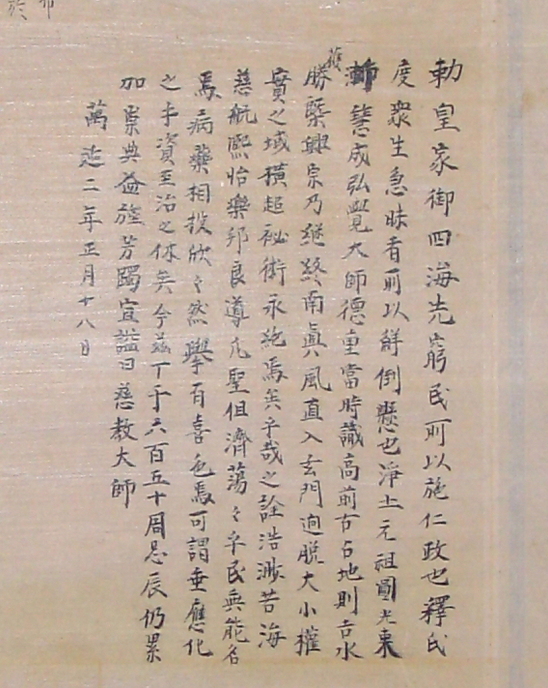 勅皇家御四海先窮民所以施仁政也釋氏
度衆生急昧者所以解倒懸也淨土元祖圓光東
漸慧成弘覺大師德重當時識高前古占地則吉水
勝槩興宗乃継終南眞風直入玄門逈脱大小權
實之域横超祕術永絶焉矣乎哉之詮浩渺苦海
慈航熙怡樂邦良導凡聖俱濟蕩〻乎民無能名
焉病藥相投欣〻然擧有喜色焉可謂垂應化
之手資至治之休矣今茲丁于六百五十周忌辰仍累
加崇典益旌芳躅宜謚曰慈教大師
萬延二年正月十八日